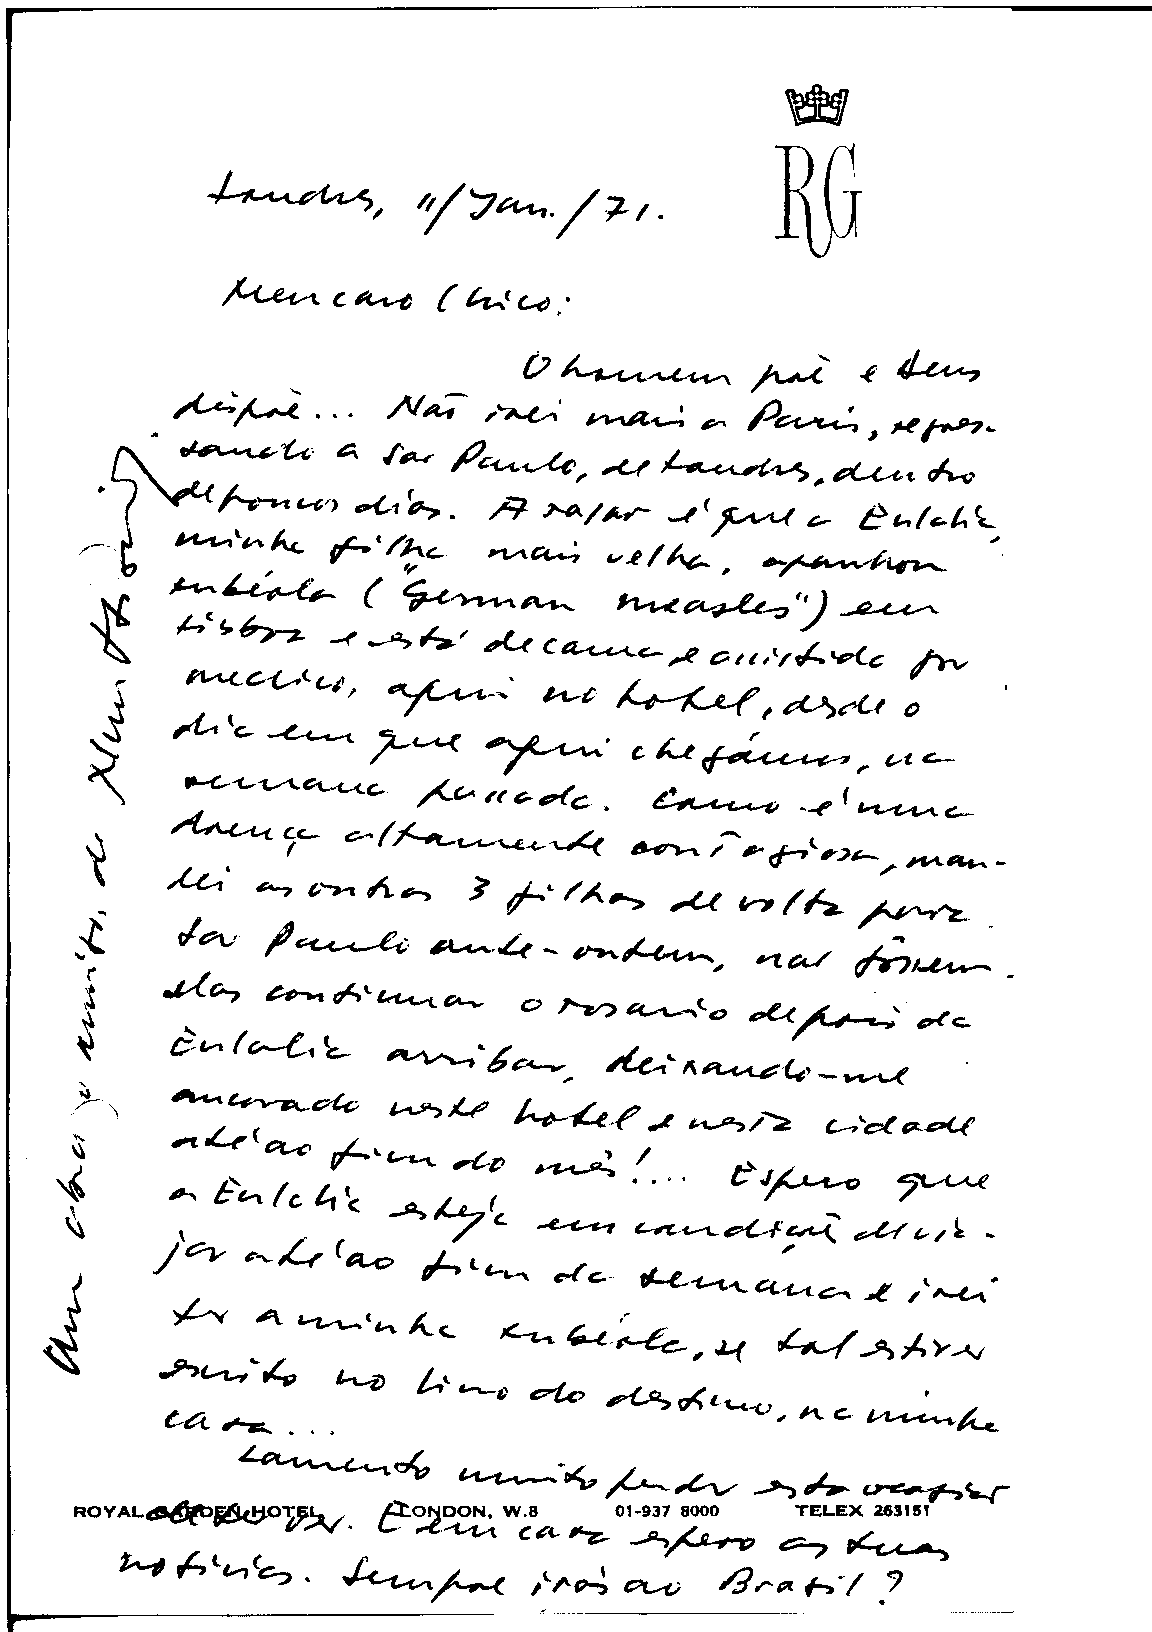 RG
Londres, 11/Jan./71.
Meu caro Chico:
O homem põe e Deus
dispõe... Não irei mais a Paris, regres-
sando a São Paulo, de Londres, dentro
de poucos dias. A razão é que a Eulália,
minha filha mais velha, apanhou
rubéola ("German measles") em
Lisboa e está de cama, e assistida por
médico, aqui no hotel, desde o
dia em que aqui chegámos, na
semana passada. Como é uma
doença altamente contagiosa, man-
dei as outras 3 filhas de volta para
São Paulo ante-ontem, não fôssem
elas continuar o rosario depois da
Eulália arribar, deixando-me
ancorado neste hotel e nesta cidade
até ao fim do mês!... Espero que
a Eulália esteja em condição de via-
jar até ao fim da semana e irei
ter a minha rubéola, se tal estiver
escrito no livro do destino, na minha
casa...
Lamento muito perder esta ocasião
de te ver. E em casa espero as tuas
notícias. Sempre irás ao Brasil?
Um abraço amigo, do
ROYAL GARDEN HOTEL LONDON, W.8 01-937 8000 TELEX 263151